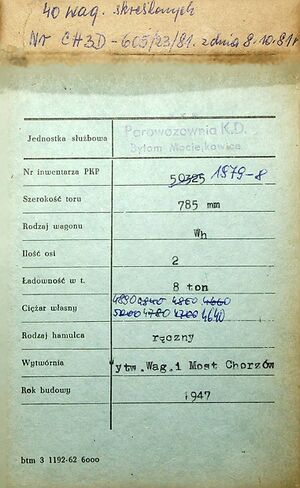 40 wag. skreślonych
Nr CH3D-605/23/81. z dnia 8.10.81r
Jednostka służbowa
Parowozownia K.D.
Bytom Maciejkowice
Nr inwentarza PKP 50325 1879-8
Szerokość toru 785 mm
Rodzaj wagonu Wh
Ilość osi 2
Ładowność w t. 8 ton
4890 4840 4860 4660
Ciężar własny 5200 4780 4700 4640
Rodzaj hamulca ręczny
Wytwórnia ytw.Wag.i Most Chorzów
Rok budowy 1947
btm 3 1192-62 6000